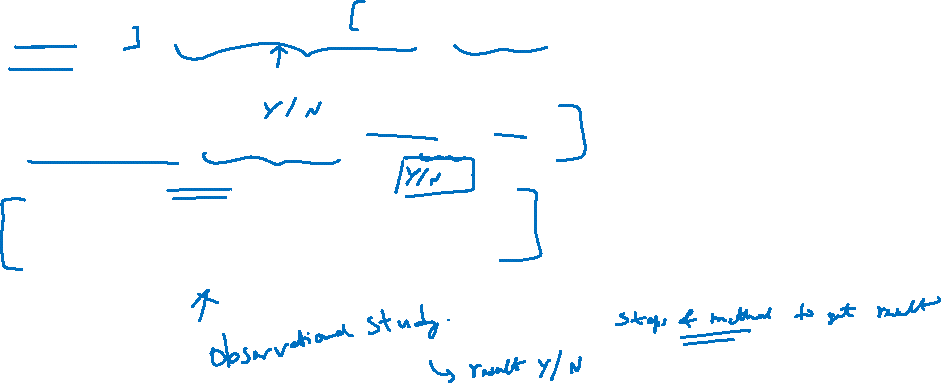 Y/N
Y/N
observational study.
↳ result Y/N
steps & method to get result